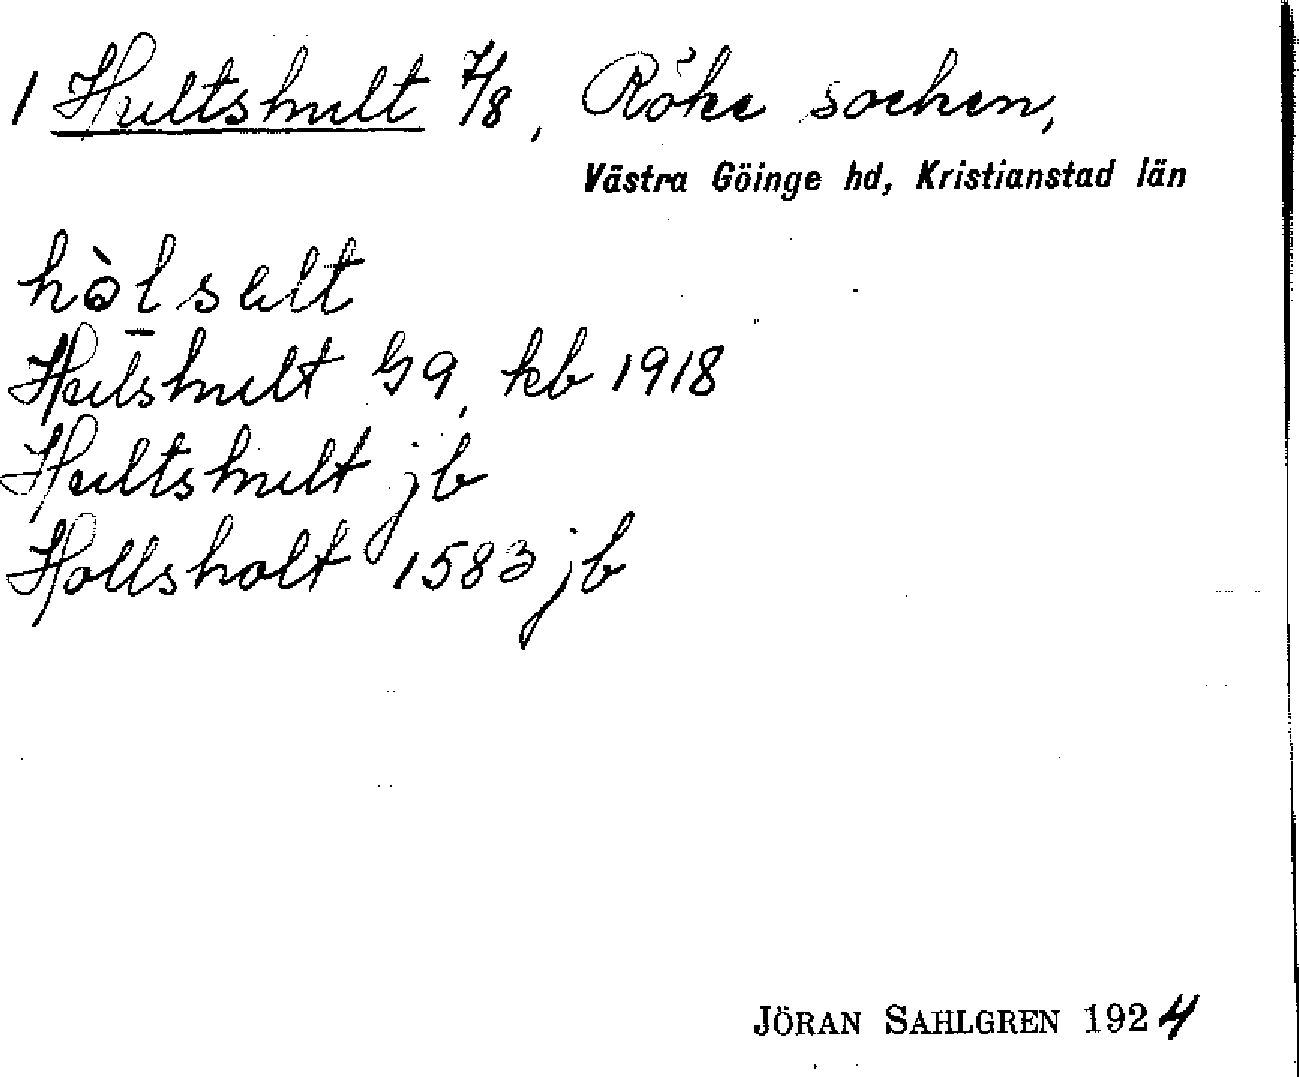 1 Hultshult 7/8, Röke socken,
Västra Göinge hd, Kristianstad län
hòlsult
Hulshult G9, kb 1918
Hultshult jb
Hollsholt 1583 jb
JÖRAN SAHLGREN 1924